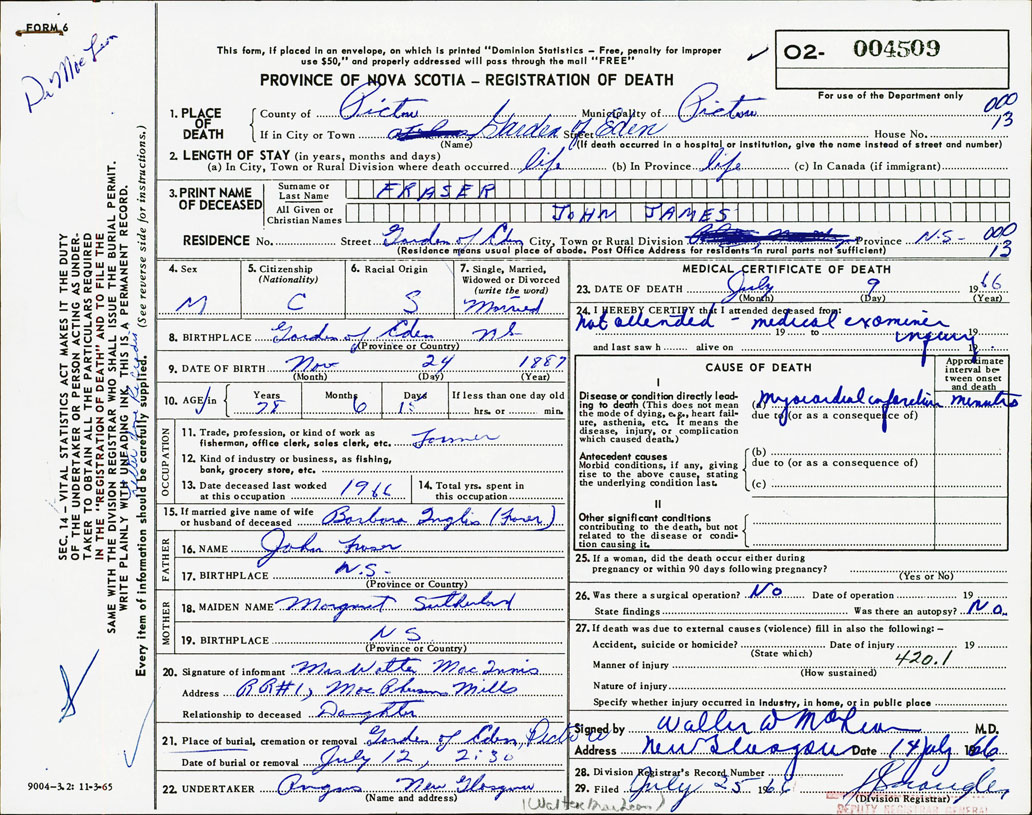 FORM 6
Dr MacLean
This form, if placed in an envelope, on which is printed "Dominion Statistics – Free, penalty for improper
use $50," and properly addressed will pass through the mail "FREE"
PROVINCE OF NOVA SCOTIA – REGISTRATION OF DEATH
02- 004509
For use of the Department only
1. PLACE OF DEATH County of Pictou Municipality of Pictou 000
If in City or Town Garden of Eden Street House No. 13
(Name) (If death occurred in a hospital or institution, give the name instead of street and number)
2. LENGTH OF STAY (in years, months and days)
(a) In City, Town or Rural Division where death occurred life (b) In Province life (c) In Canada (if immigrant)
3. PRINT NAME OF DECEASED Surname or Last Name FRASER
All Given or Christian Names JOHN JAMES
RESIDENCE No. Street Garden of Eden City, Town or Rural Division Province N.S- 000
(Residence means usual place of abode. Post Office Address for residents in rural parts not sufficient) 13
4. Sex M
5. Citizenship (Nationality) C
6. Racial Origin S
7. Single, Married, Widowed or Divorced (write the word) Married
8. BIRTHPLACE Garden of Eden NS
(Province or Country)
9. DATE OF BIRTH Nov 24 1887
(Month) (Day) (Year)
10. AGE in Years 78 Months 6 Days 15 If less than one day old hrs. or min.
OCCUPATION
11. Trade, profession, or kind of work as fisherman, office clerk, sales clerk, etc. Farmer
12. Kind of industry or business, as fishing, bank, grocery store, etc.
13. Date deceased last worked at this occupation 1966 14. Total yrs. spent in this occupation
15. If married give name of wife or husband of deceased Barbara Inglis (Fraser)
FATHER
16. NAME John Fraser
17. BIRTHPLACE N.S-
(Province or Country)
MOTHER
18. MAIDEN NAME Margaret Sutherland
19. BIRTHPLACE NS
(Province or Country)
20. Signature of informant Mrs Walter MacInnis
Address RR#1, MacPhersons Mills
Relationship to deceased Daughter
21. Place of burial, cremation or removal Garden of Eden, Pictou
Date of burial or removal July 12, 2:30
22. UNDERTAKER Angus New Glasgow
(Name and address)
(Walter MacLean)
9004-3.2: 11-3-65
MEDICAL CERTIFICATE OF DEATH
23. DATE OF DEATH July 9 1966
(Month) (Day) (Year)
24. I HEREBY CERTIFY that I attended deceased from:
Not attended - medical examiner
19 to 19
inquiry
and last saw h alive on 19
CAUSE OF DEATH
Approximate interval between onset and death
I
Disease or condition directly leading to death (This does not mean the mode of dying, e.g., heart failure, asthenia, etc. It means the disease, injury, or complication which caused death.)
(a) myocardial infarction minutes
due to (or as a consequence of)
Antecedent causes
Morbid conditions, if any, giving rise to the above cause, stating the underlying condition last.
(b)
due to (or as a consequence of)
(c)
II
Other significant conditions
contributing to the death, but not related to the disease or condition causing it.
25. If a woman, did the death occur either during pregnancy or within 90 days following pregnancy?
(Yes or No)
26. Was there a surgical operation? No Date of operation 19
State findings Was there an autopsy? No.
27. If death was due to external causes (violence) fill in also the following: –
Accident, suicide or homicide? Date of injury 19
(State which)
Manner of injury 420.1
(How sustained)
Nature of injury
Specify whether injury occurred in Industry, in home, or in public place
Signed by Walter W McLean M.D.
Address New Glasgow Date 14 July 1966
28. Division Registrar's Record Number
29. Filed July 25 1966
(Division Registrar)
DEPUTY REGISTRAR GENERAL
SEC. 14 – VITAL STATISTICS ACT MAKES IT THE DUTY
OF THE UNDERTAKER OR PERSON ACTING AS UNDER-
TAKER TO OBTAIN ALL THE PARTICULARS REQUIRED
IN THE "REGISTRATION OF DEATH" AND TO FILE THE
SAME WITH THE DIVISION REGISTRAR WHO SHALL ISSUE THE BURIAL PERMIT.
WRITE PLAINLY WITH UNFADING INK, THIS IS A PERMANENT RECORD.
Every item of information should be carefully supplied. (See reverse side for instructions.)